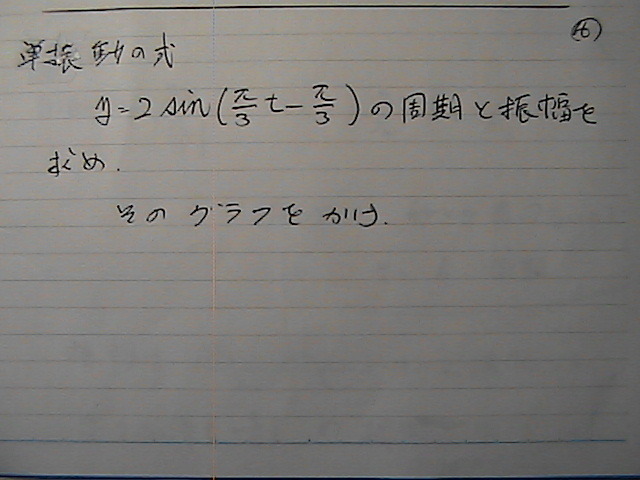 ⑯
単振動の式
y=2 sin(π/3 t - π/3)の周期と振幅を
求め.
そのグラフをかけ.